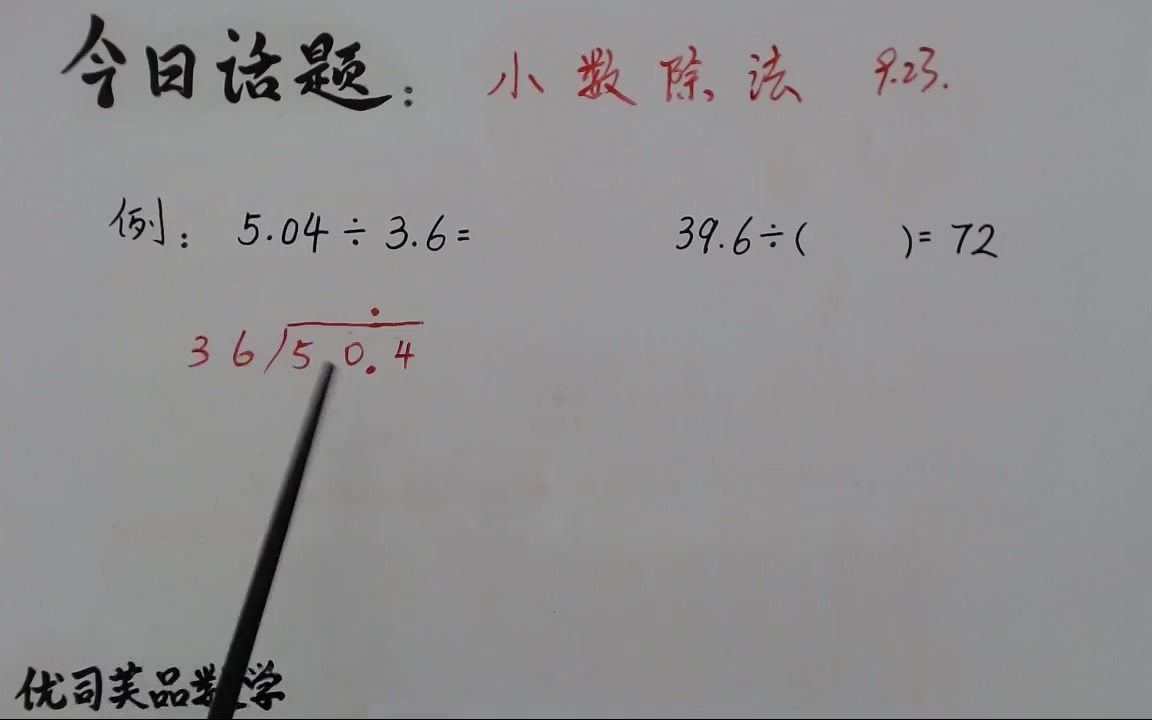 今日话题：小数除法 9.23.
例：5.04÷3.6= 39.6÷( )=72
36/50.4
优司芙品数学